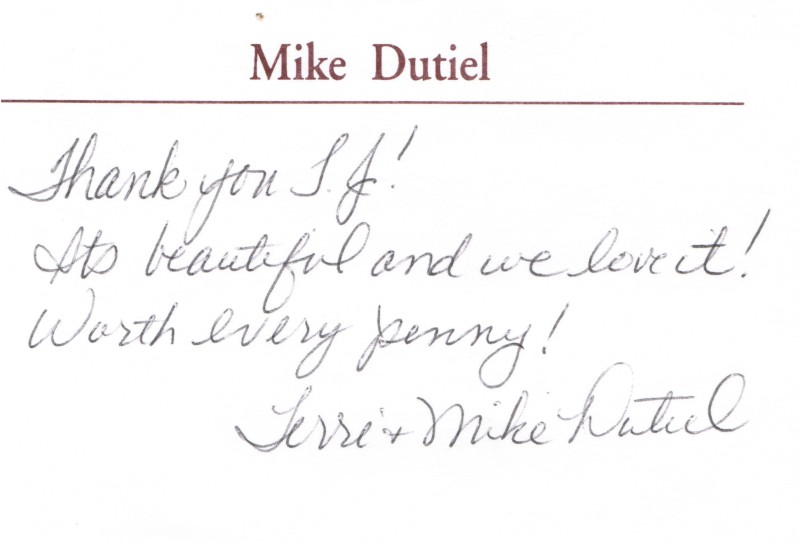 Mike Dutiel
Thank you T.J!
Its beautiful and we love it!
Worth every penny!
Terri + Mike Dutiel